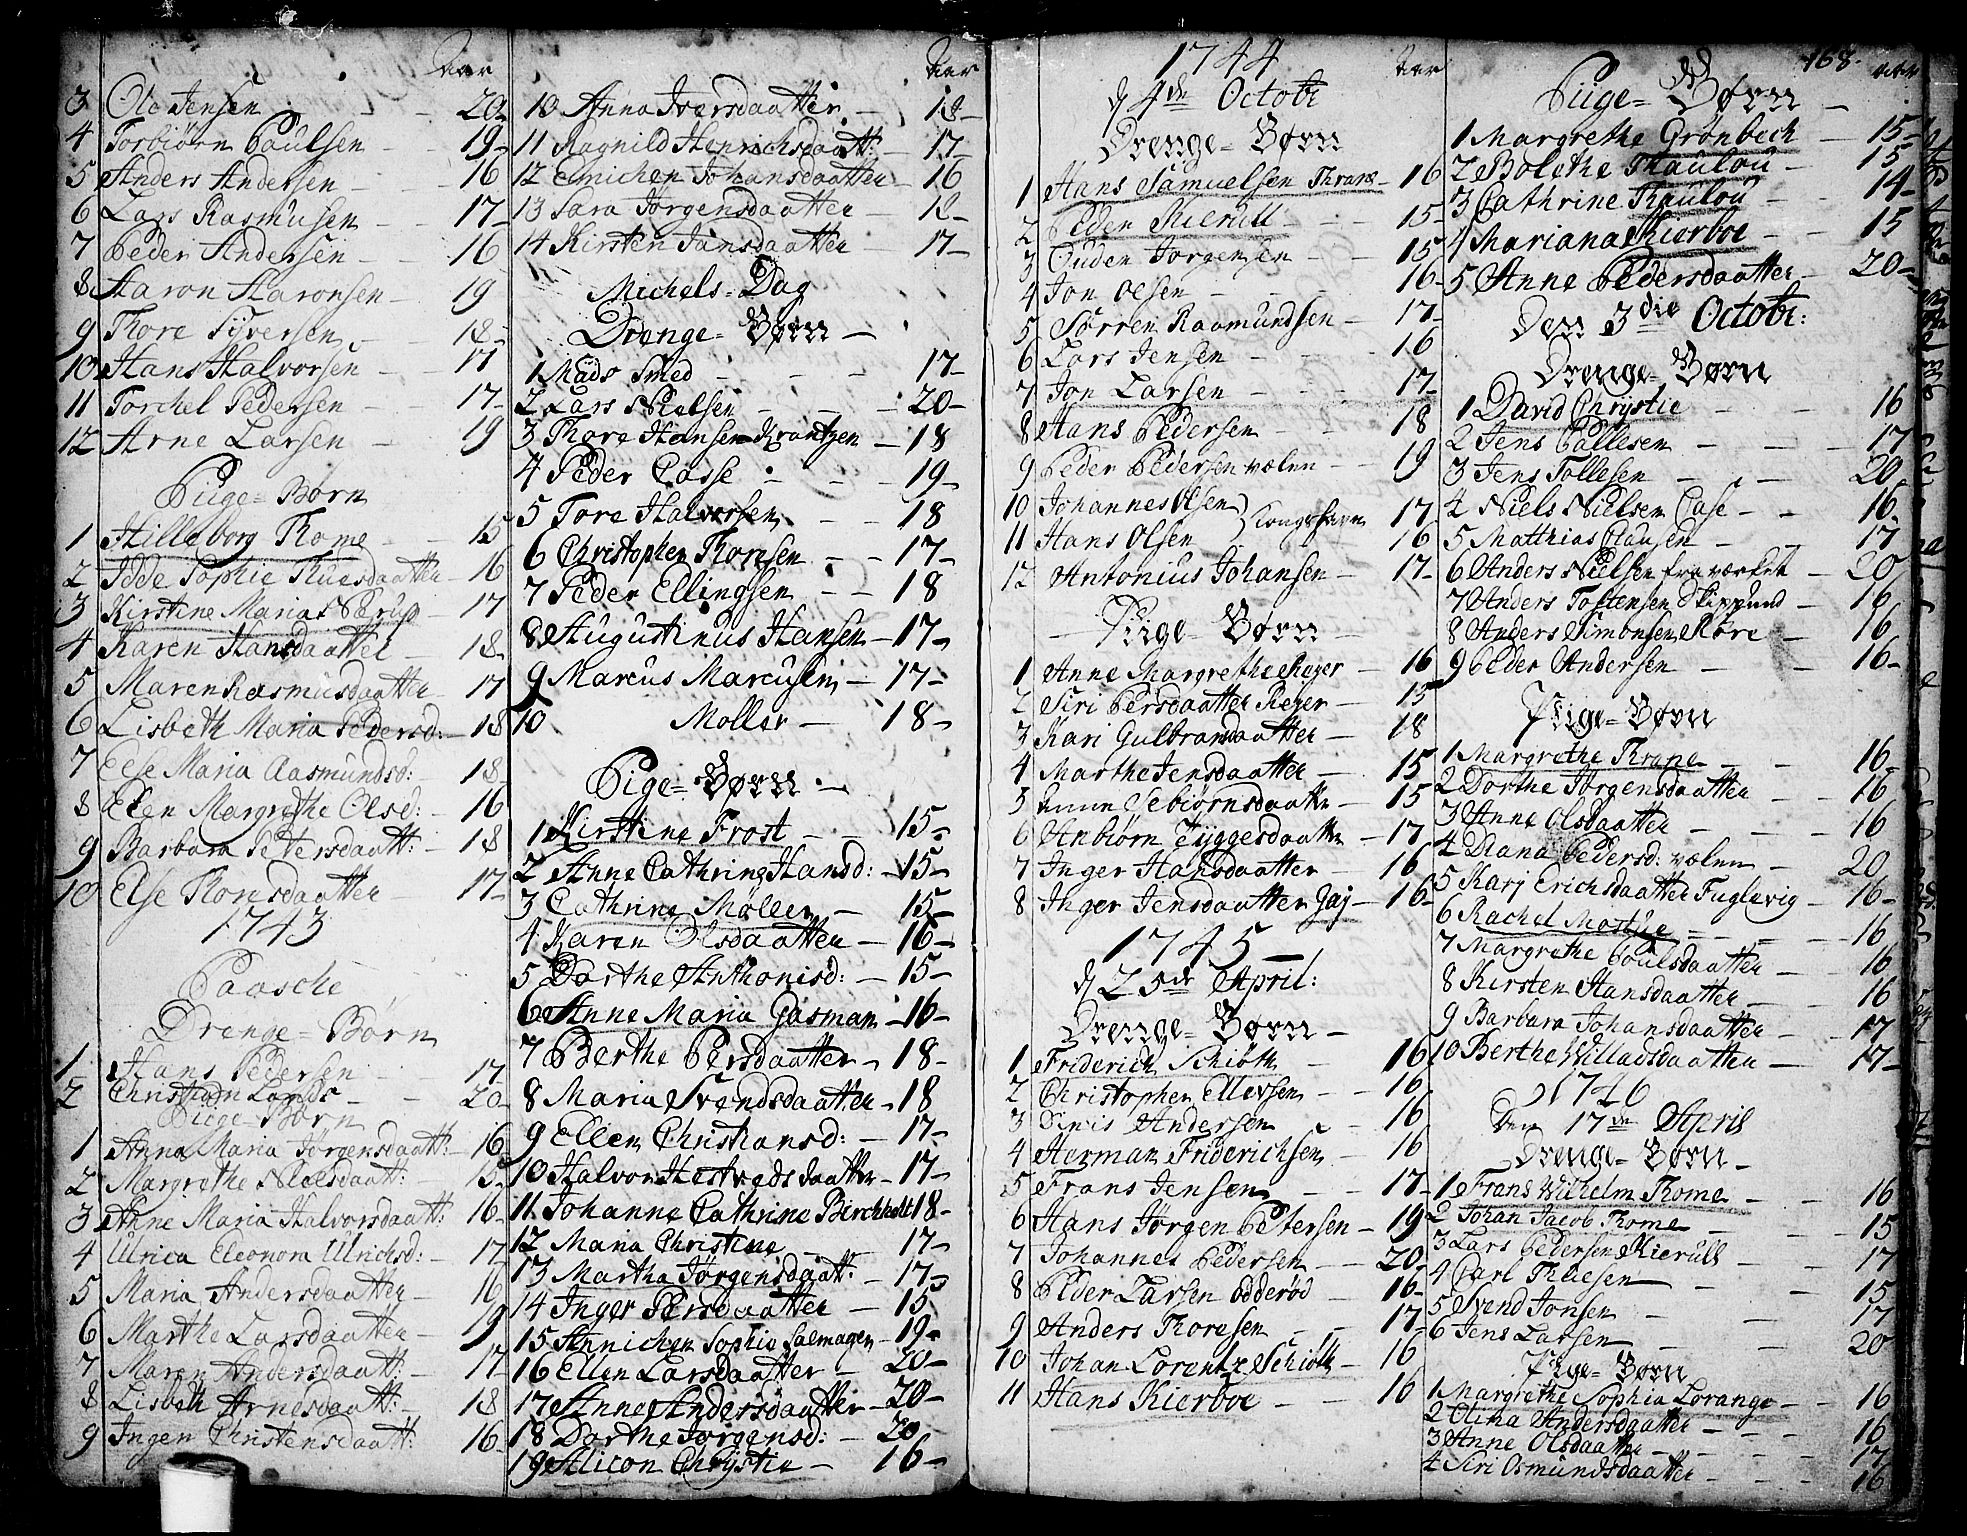 Aar
3 Ole Jensen - 20
4 Torbiørn Poulsen - 19
5 Anders Andersen - 16
6 Lars Rasmusen - 17
7 Peder Andersen - 16
8 Aaron Aaronsen - 19
9 Thore Siversen - 18
10 Hans Halvorsen - 17
11 Torchel Pedersen - 17
12 Arne Larsen - 19
Piige-Børn
1 Hilleborg Thome - 15
2 Idde Sophie Thuesdaatter - 16
3 Kirstine Maria Nerup - 17
4 Karen Hansdaatter - 18
5 Maren Rasmusdaatter - 17
6 Lisbeth Maria Pedersd: - 18
7 Else Maria Aasmundsd: - 18
8 Elen Margrethe Olsd: - 16
9 Barbara Petersdaatt: - 18
10 Else Thorsdaatter - 17
1743
Paasche
Drenge-Børn
1 Hans Pedersen 17
2 Christian - 20
Piige-Børn
1 Anna Maria Jørgensdaatt: - 16
2 Margrethe Nielsdaatt: - 15
3 Anne Maria Halvorsdaatt: 16
4 Ulrica Eleonora Ulrichsd: - 17
5 Maria Andersdaatter - 16
6 Marthe Larsdaatter - 19
7 Maren Andersdaatt: - 17
8 Lisbeth Arnesdaatt: - 18
9 Inger Christensdaatt: 16
Aar
10 Anna Iversdaatter - 18
11 Ragnild Henrichsdaatt: - 17
12 Emichen Johansdaatter - 16
13 Sara Jørgensdaatter - 18
14 Kirsten Jansdaatter - 17
Michels-Dag
Drenge-Børn
1 Mads Smed - 17
2 Lars Nielsen - 20
3 Thore Hansen Krantzen - 18
4 Peder Casse - 19
5 Tore Halvorsen - 18
6 Christopher Thoresen - 17
7 Peder Ellingsen - 18
8 Augustinus Hansen - 17
9 Marcus Marcusen - 17
10 Moller - 18
Pige-Børn
1 Kirstine Frost - 15
2 Anne Cathrine Hansd: - 15
3 Cathrine Møller - 15
4 Karen Olsdaatter - 16
5 Dorthe Anthonisd: - 15
6 Anne Maria Gasman - 16
7 Berthe Persdaatter - 18
8 Maria Svendsdaatter - 18
9 Ellen Christiansd: - 17
10 Halvor Hestvedsdaatter - 17
11 Johanne Cathrine Birchholt 18
12 Maria Christine - 17
13 Martha Jørgensdaatt: - 17
14 Inger Persdaatter - 15
15 Annichen Sophia Salmagen - 19
16 Ellen Larsdaatter - 20
17 Anne Andersdaatter - 20
18 Dorthe Jørgensd: - 20
19 Alicon Chrystie - 16
1744
Aar
d 4de Octobr
Drenge-Børn
1 Hans Samuelsen Thrane - 16
2 Peder Kierull - 15
3 Ouden Jørgensen - 15
4 Jon Olsen - 16
5 Sørren Raamundsen - 17
6 Lars Jensen - 16
7 Jon Larsen - 17
8 Hans Pedersen - 18
9 Peder Pedersen vælen - 19
10 Johannes Olsen 17
11 Hans Olsen 16
12 Antonius Johansen - 17
Piige-Børn
1 Anne Margrethe Reyer - 16
2 Siri Persdaatter Reyer - 15
3 Kari Gulbransdaatter - 18
4 Marthe Jensdaatter - 15
5 Esbiørnsdaatt - 15
6 Anbiørn Tyggesdaatt - 17
7 Inger Hansdaatter - 16
8 Inger Jensdaatter Gaj - 16
1745
d 25de April:
Drenge-Børn
1 Friderich Schiøth 16
2 Christopher Ellevsen - 16
3 Andersen - 16
4 Herman Friderichsen - 16
5 Frans Jensen - 17
6 Hans Jørgen Petersen - 19
7 Johannes Pedersen - 20
8 Peder Larsen Odderød - 16
9 Anders Thoresen - 17
10 Johan Lorentz Schiøth - 16
11 Hans Kierboe - 16
168
Aar
Piige-Børn
1 Margrethe Grønbech - 15
2 Bolethe Thaulou - 15
3 Cathrine Thaulou - 14
4 Mariana Kierboe - 15
5 Anne Pedersdaatter - 20
Den 3die Octobr:
Drenge-Børn
1 David Chrystie - 16
2 Jens Pallesen - 17
3 Jens Tollesen - 20
4 Niels Nielsen Case - 16
5 Matthias Clausen - 17
6 Anders Nielsen fra værket - 20
7 Anders Tostensen Skippund - 16
8 Anders Simonsen Røre - 16
9 Peder Andersen - 16
Piige-Børn
1 Margrethe Thrane - 16
2 Dorthe Jørgensdaatter - 16
3 Anne Olsdaatter - 16
4 Diana Pedersd: vælen - 20
5 Karj Erichsdaatter Fuglevig - 16
6 Rachel Mostue - 16
7 Margrethe Poulsdaatter - 16
8 Kirsten Hansdaatter - 16
9 Barbara Johansdaatter - 17
10 Berthe Willadsdaatter - 17
1746
Den 17de April
Drenge-Børn
1 Frans Wilhelm Thome - 16
2 Johan Jacob Thome - 15
3 Lars Pedersen Kierull - 17
4 Carl Thuesen - 15
5 Svend Jonsen - 17
6 Jens Larsen - 20
Piige-Børn
1 Margrethe Sophia Lorange - 16
2 Olina Andersdaatter - 16
3 Anne Olsdaatter - 17
4 Siri Osmundsdaatter - 16